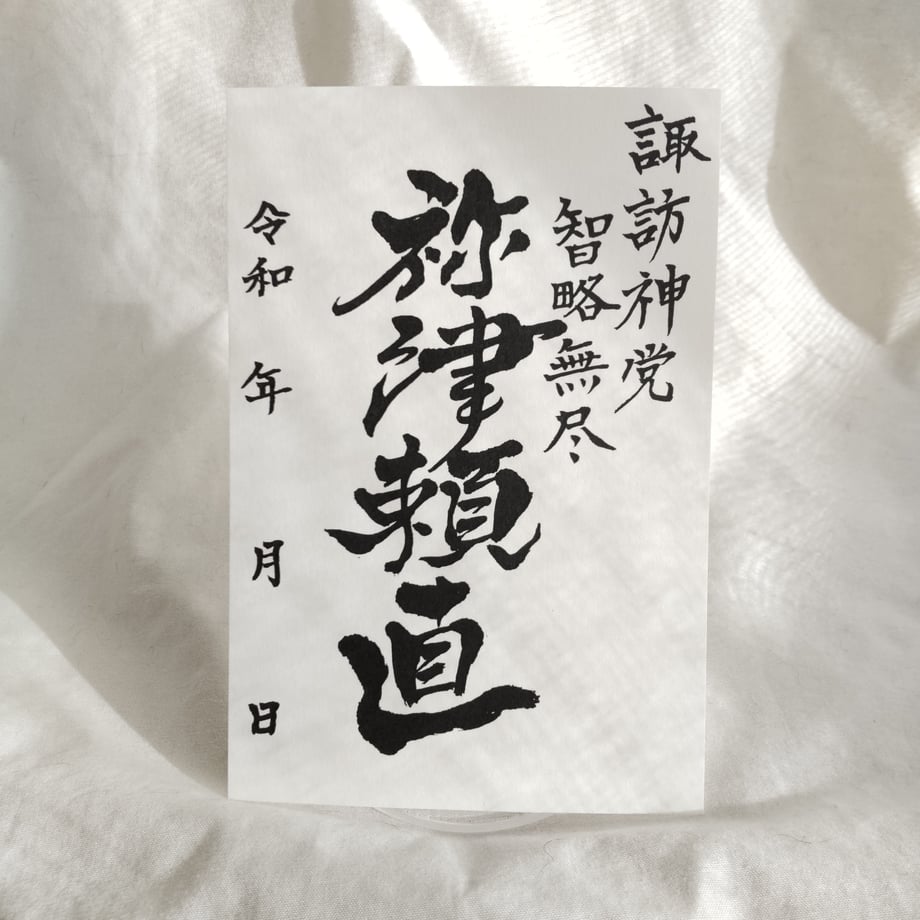 諏訪神党
智略無尽
祢津頼直
令和 年 月 日